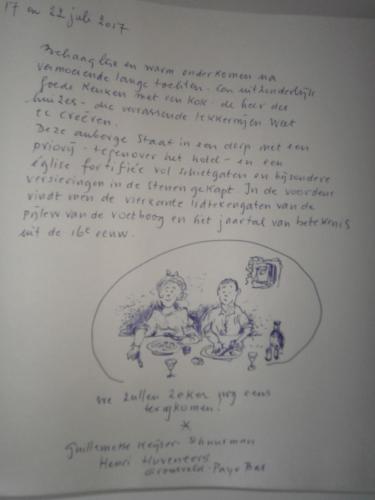 17 en 22 juli 2017
Behaaglijk en warm onderkomen na
vermoeiende lange tochten. Een uitzonderlijk
goede keuken met een kok - de heer des
huizes - die verrassende lekkernijen weet
te creëren.
Deze auberge staat in een dorp met een
priorij - tegenover het hotel - en een
église fortifiée vol schietgaten en bijzondere
versieringen in de stenen gekapt. In de voordeur
vindt men de vierkante lidtekengaten van de
pijlen van de voetboog en het jaartal van betekenis
uit de 16e eeuw.
We zullen zeker nog eens
terugkomen!
*
Guillemette Keijser-Schuurman
Henri Huveneers
Gronsveld - Pays Bas